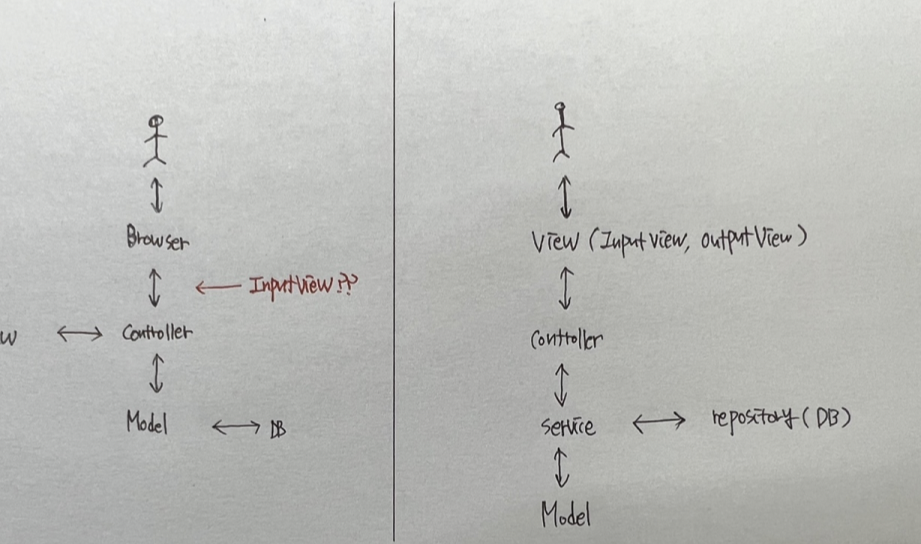 Browser
InputView??
W
Controller
Model
DB
View (InputView, outputView)
Controller
service
repository (DB)
Model